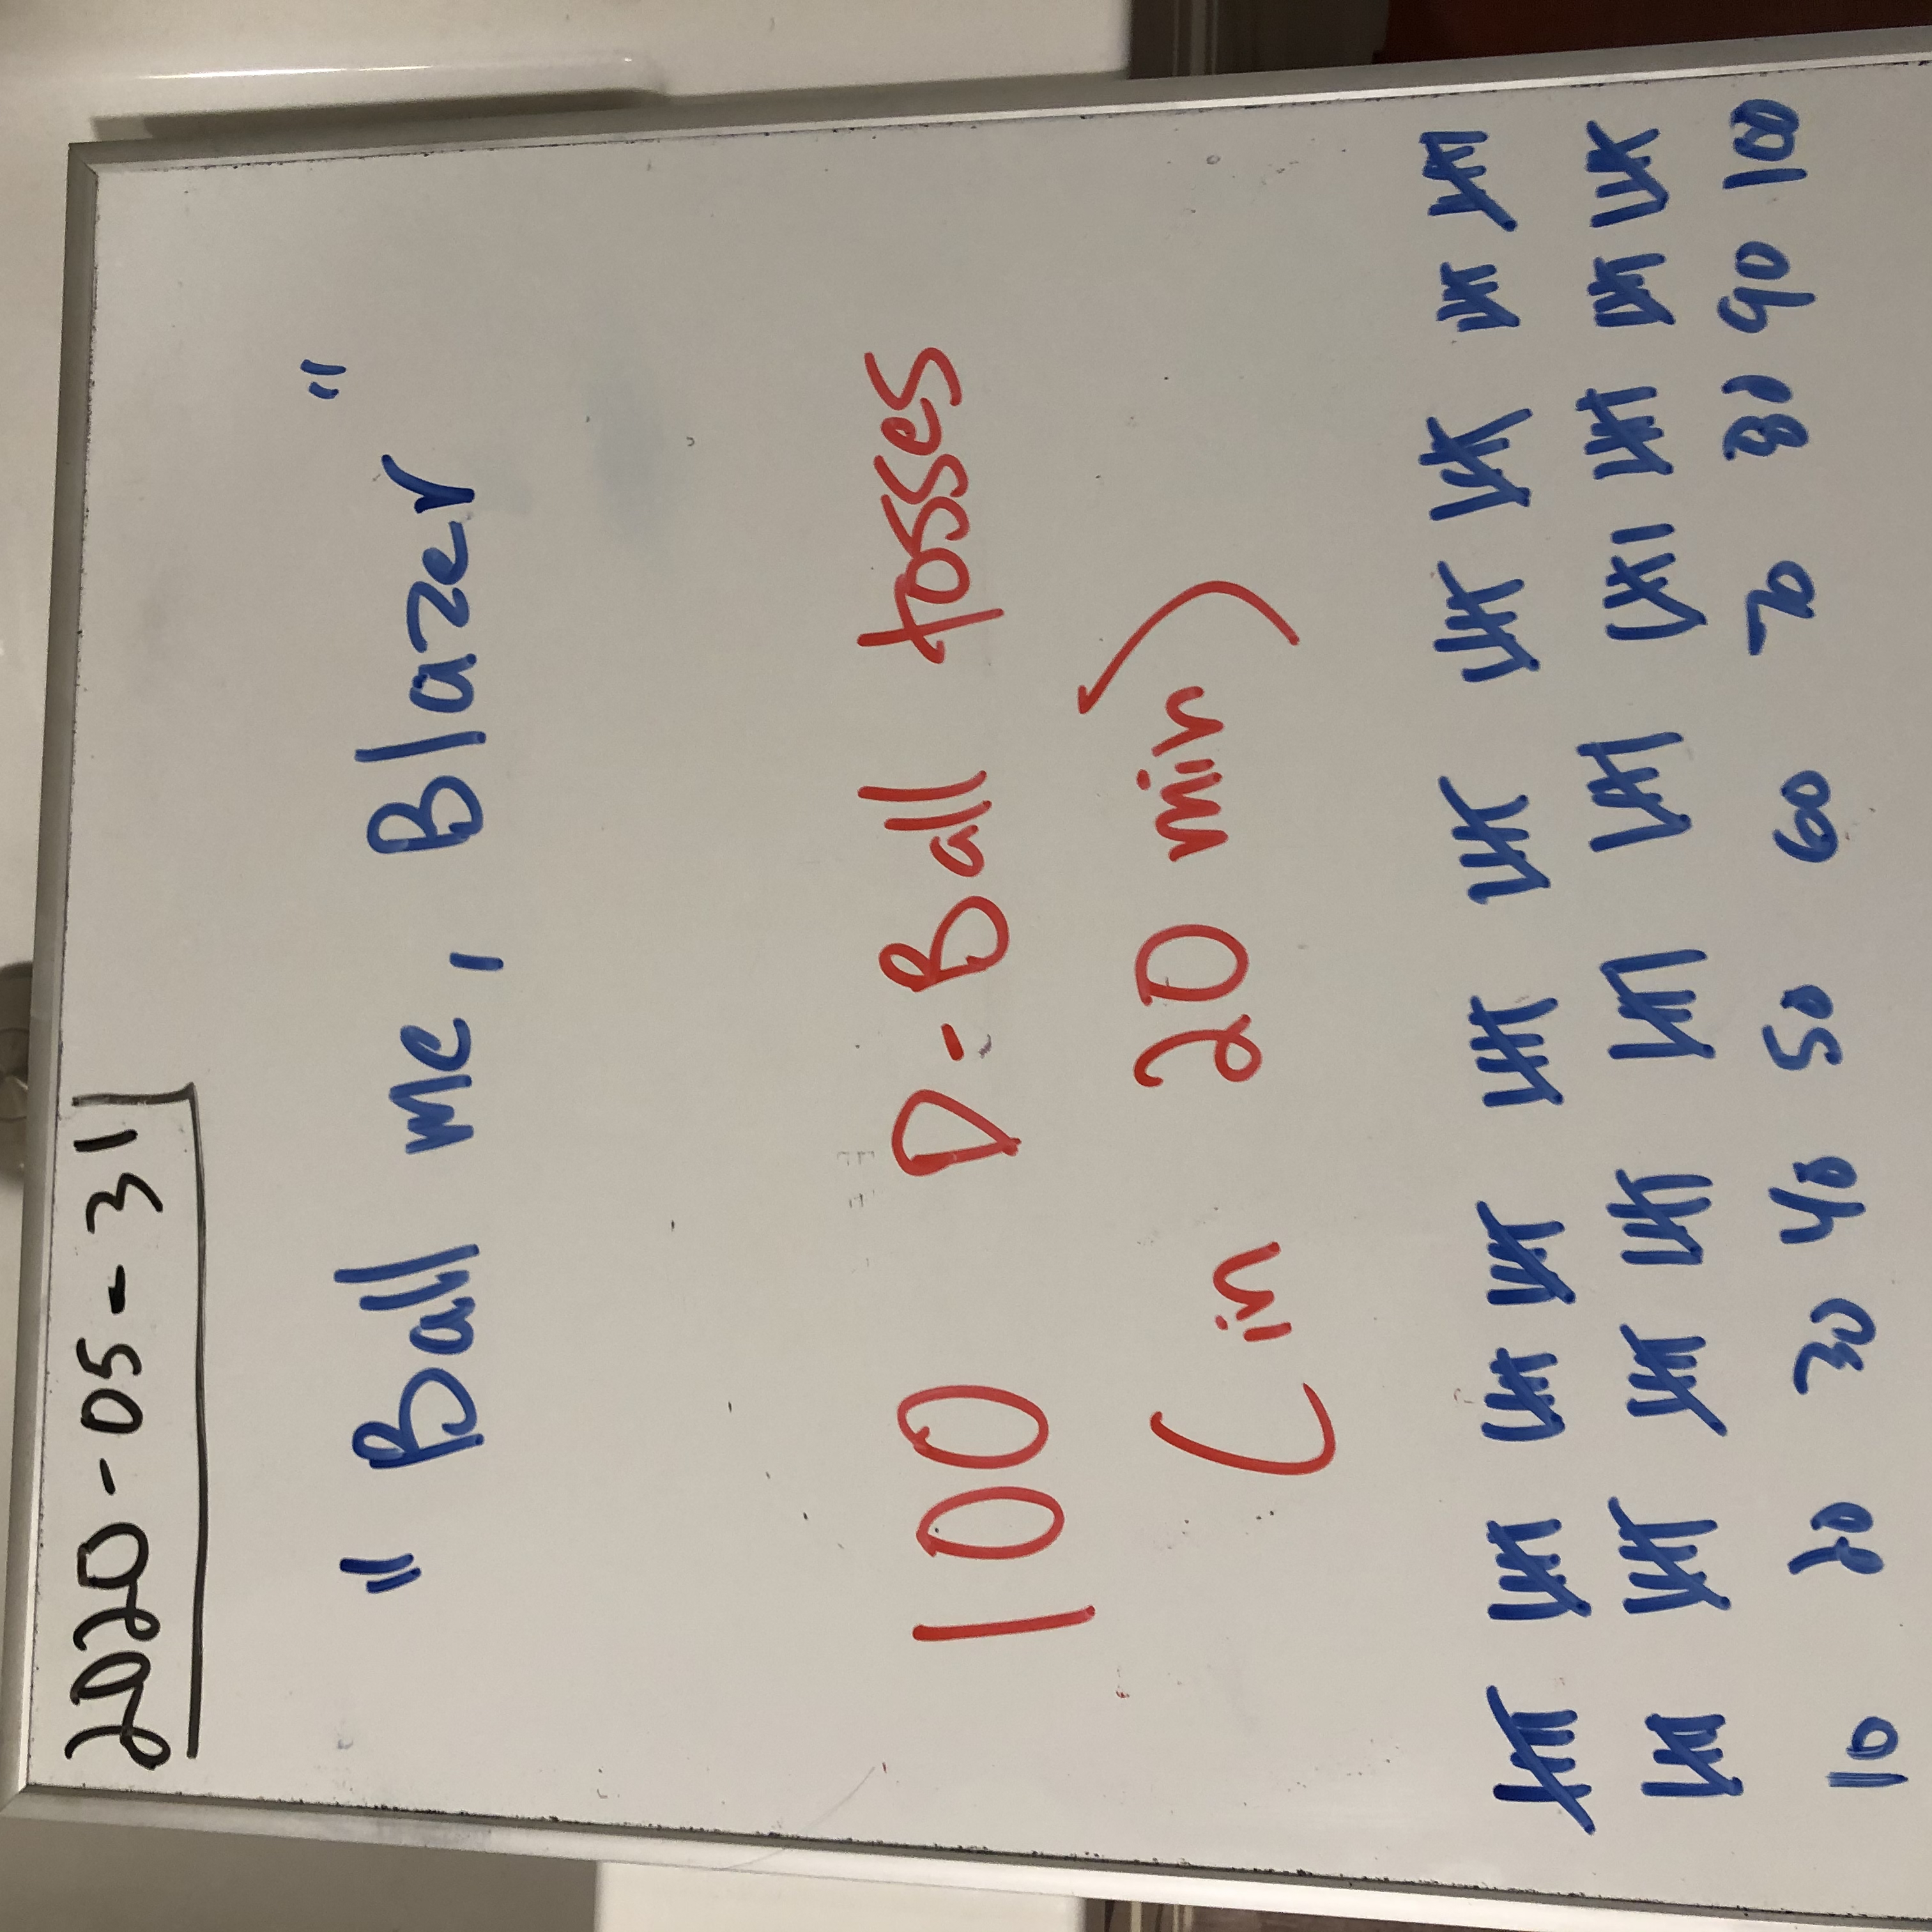 2020-05-31
"Ball me, Blazer"
100 D-Ball tosses
(in 20 min)
10 20 30 40 50 60 70 80 90 100